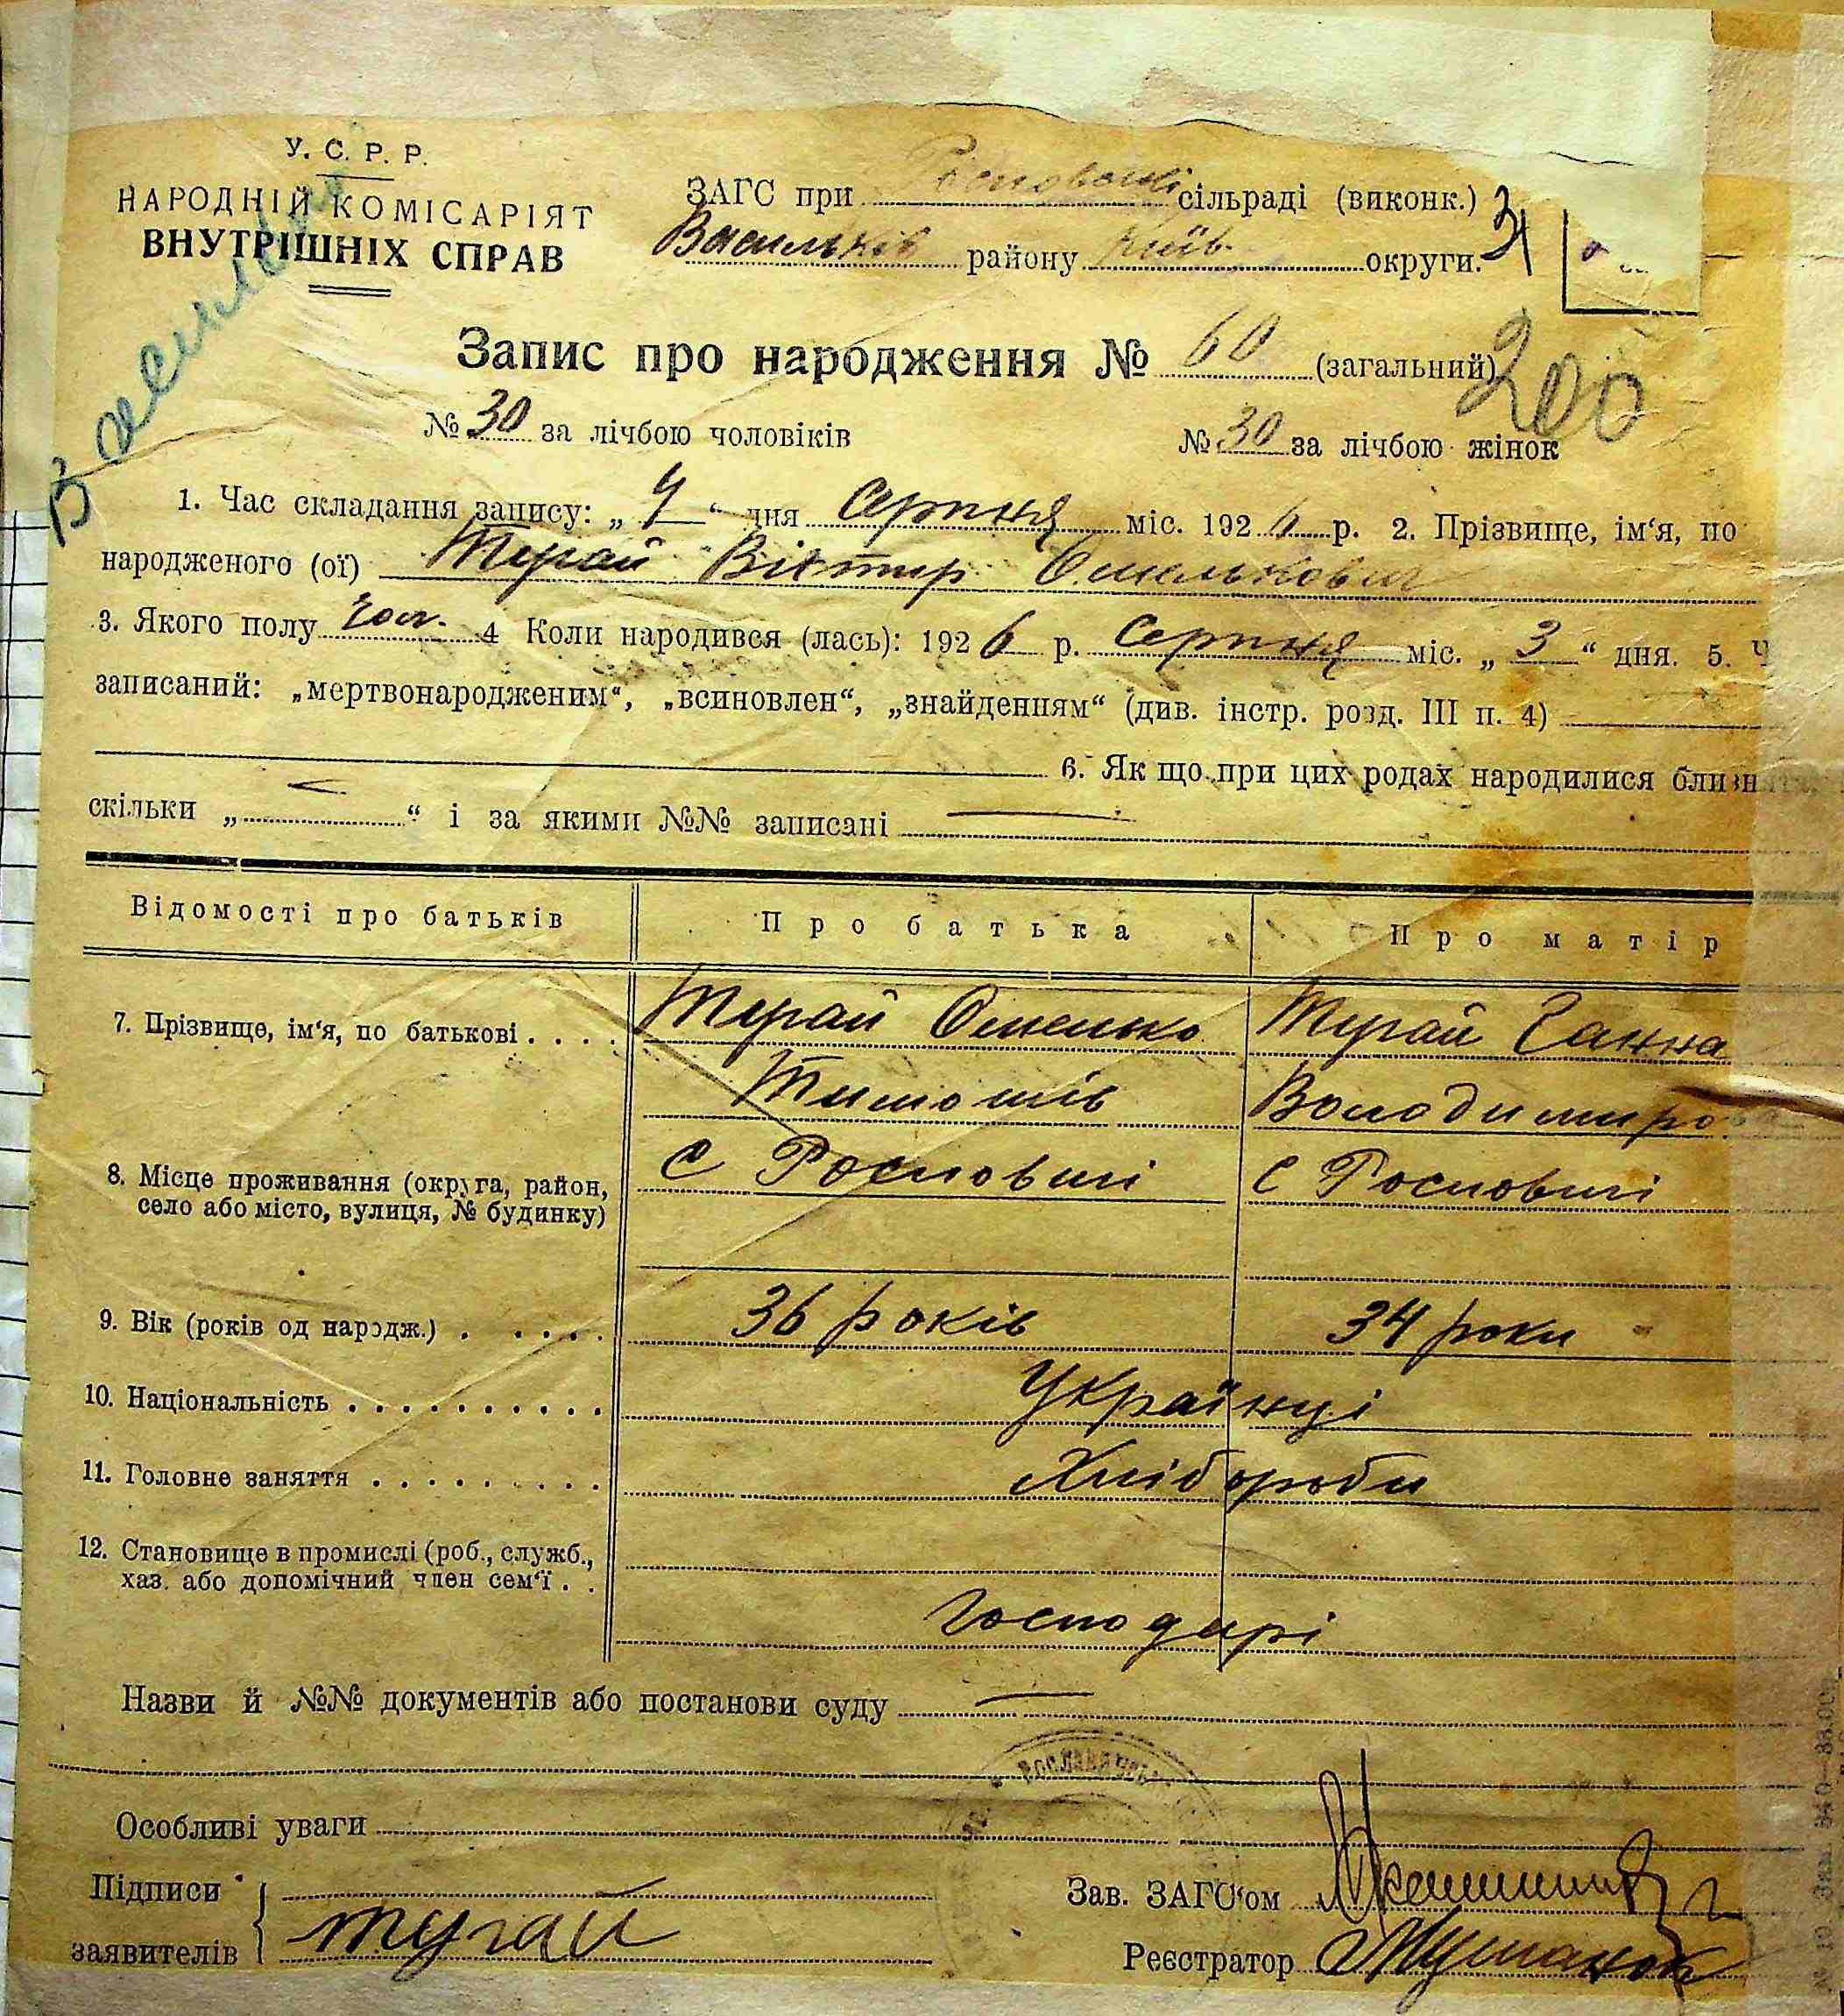 У. С. Р. Р.
НАРОДНІЙ КОМІСАРІЯТ
ВНУТРІШНІХ СПРАВ
ЗАГС при сільраді (виконк.)
Васильків району Київ. округи.
31
Запис про народження № 60 (загальний)
200
№ 30 за лічбою чоловіків № 30 за лічбою жінок
1. Час складання запису: „ “ дня Серпня міс. 1926 р. 2. Прізвище, ім'я, по
народженого (ої) Тугай Віктир Омелькович
3. Якого полу чол. 4 Коли народився (лась): 1926 р. Серпня міс. „3“ дня. 5. Ч
записаний: „мертвонародженим“, „всиновлен“, „знайденням“ (див. інстр. розд. III п. 4)
6. Як що при цих родах народилися близн
скільки „ “ і за якими №№ записані
Відомості про батьків Про батька Про матір
7. Прізвище, ім'я, по батькові Тугай Омелько Тугай Ганна
Тимошів Володимиро
8. Місце проживання (округа, район,
село або місто, вулиця, № будинку)
с Росновичі с Росновичі
9. Вік (років од народж.) 36 років 34 роки
10. Національність Українці
11. Головне заняття Хлібороби
12. Становище в промислі (роб., служб.,
хаз. або допомічний член сем'ї
Господарі
Назви й №№ документів або постанови суду
Особливі уваги
Підписи
заявителів
Тугай
Зав. ЗАГС'ом
Реєстратор